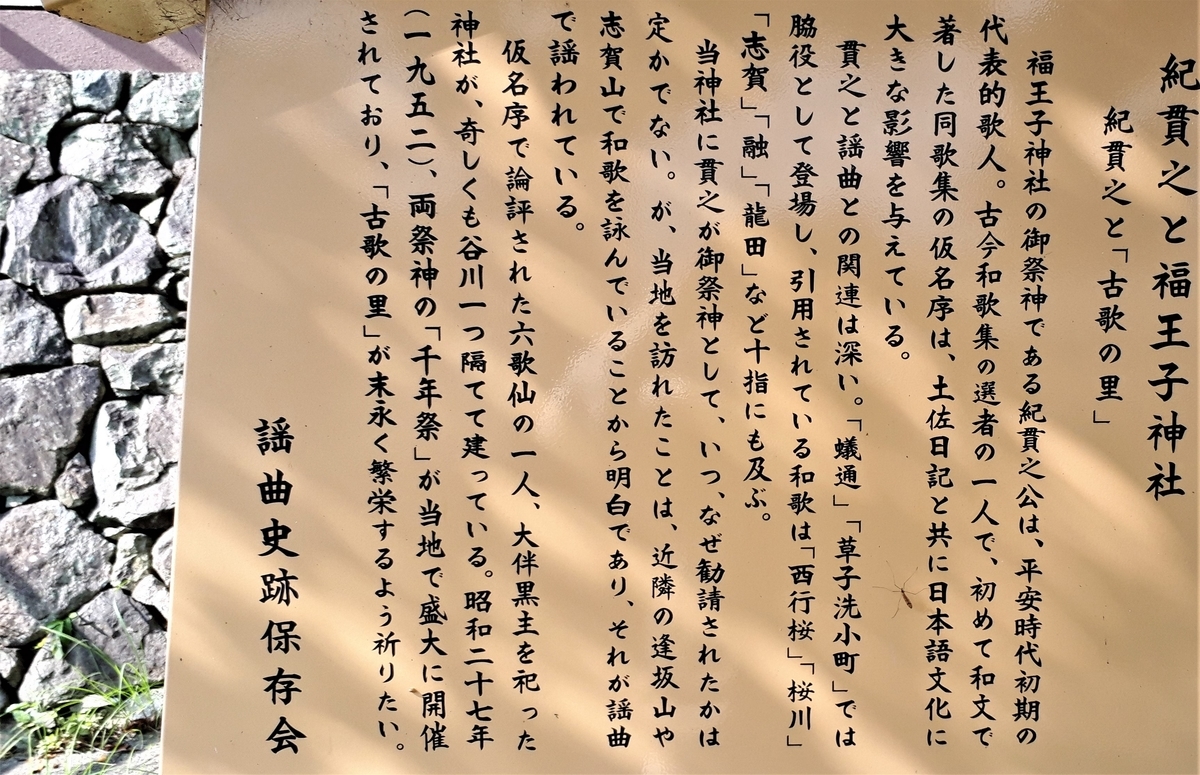 紀貫之と福王子神社
紀貫之と「古歌の里」
福王子神社の御祭神である紀貫之公は、平安時代初期の
代表的歌人。古今和歌集の選者の一人で、初めて和文で
著した同歌集の仮名序は、土佐日記と共に日本語文化に
大きな影響を与えている。
貫之と謡曲との関連は深い。「蟻通」「草子洗小町」では
脇役として登場し、引用されている和歌は「西行桜」「桜川」
「志賀」「融」「龍田」など十指にも及ぶ。
当神社に貫之が御祭神として、いつ、なぜ勧請されたかは
定かでない。が、当地を訪れたことは、近隣の逢坂山や
志賀山で和歌を詠んでいることから明白であり、それが謡曲
で謡われている。
仮名序で論評された六歌仙の一人、大伴黒主を祀った
神社が、奇しくも谷川一つ隔てて建っている。昭和二十七年
(一九五二)、両祭神の「千年祭」が当地で盛大に開催
されており、「古歌の里」が末永く繁栄するよう祈りたい。
謡曲史跡保存会